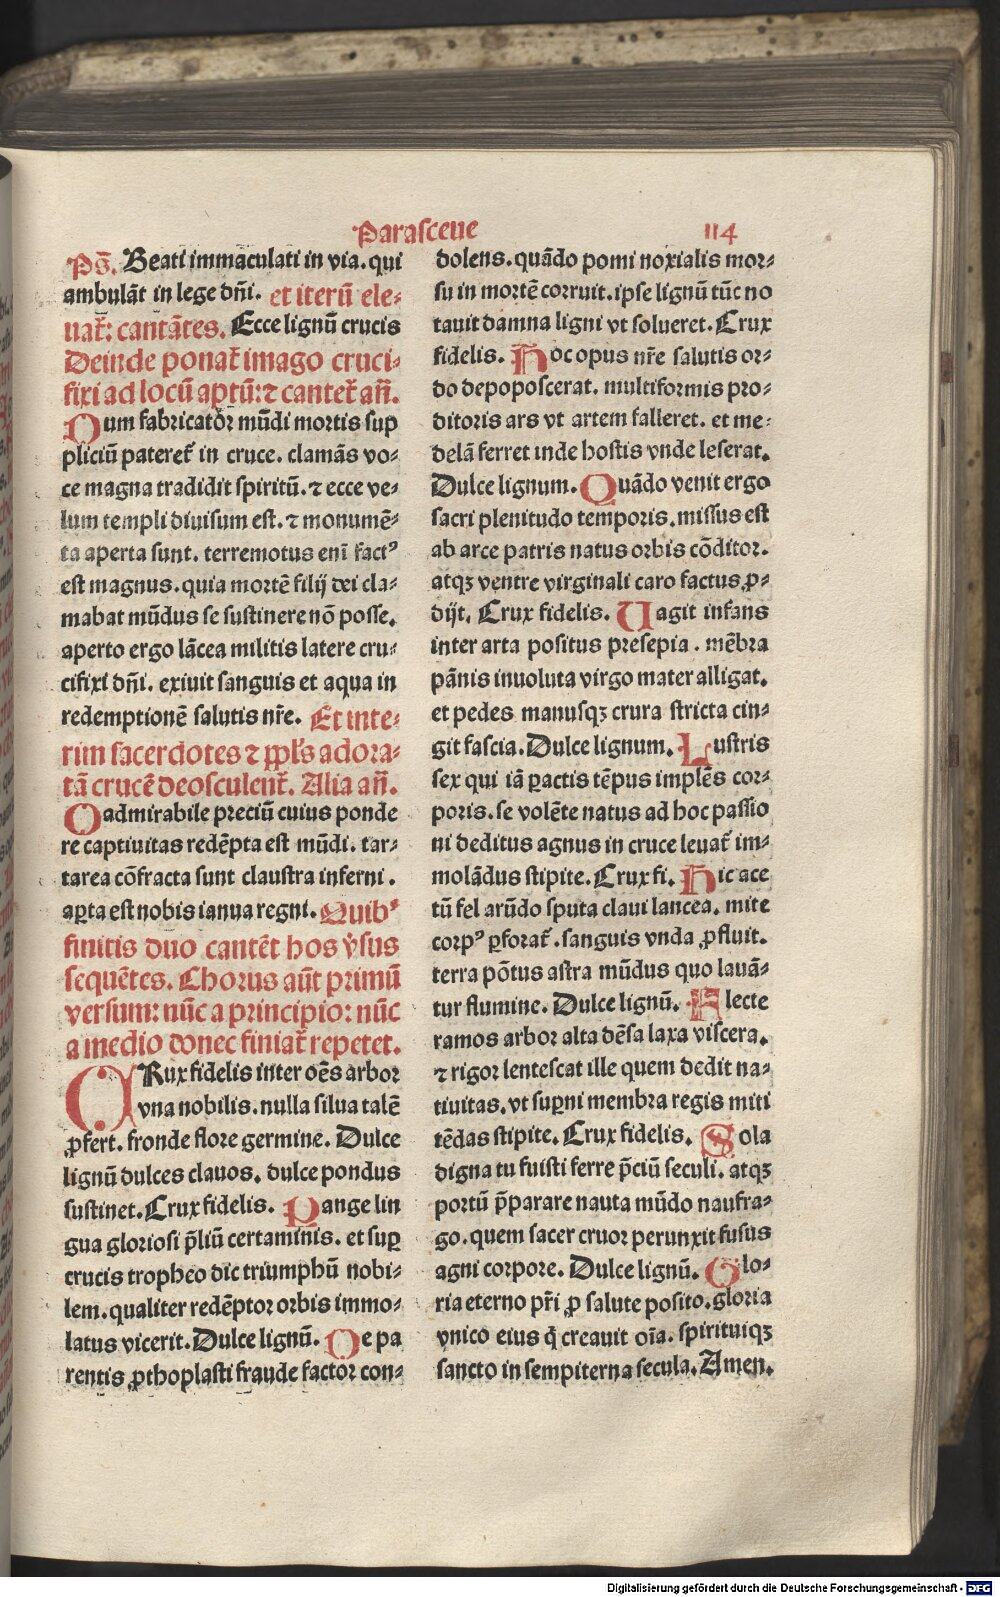 Parasceue 114
Ps̄. Beati immaculati in via. qui
ambulāt in lege dn̄i. et iterū ele⸗
uat᷒: cantātes. Ecce lignū crucis
Deinde ponat᷒ imago cruci⸗
fixi ad locū aptū: ⁊ cantet᷒ an̄.
Dum fabricatōr mūdi mortis sup
pliciū pateret᷒ in cruce. clamās vo⸗
ce magna tradidit spiritū. ⁊ ecce ve⸗
lum templi diuisum est. ⁊ monumē⸗
ta aperta sunt. terremotus eni᷒ factꝰ
est magnus. quia mortē filij dei cla⸗
mabat mūdus se sustinere nō posse.
aperto ergo lācea militis latere cru⸗
cifixi dn̄i. exiuit sanguis et aqua in
redemptionē salutis nr̄e. Et inte⸗
rim sacerdotes ⁊ ppl̄s adora⸗
tā crucē deosculent᷒. Alia an̄.
O admirabile preciū cuius ponde
re captiuitas redēpta est mūdi. tar⸗
tarea cōfracta sunt claustra inferni.
aꝑta est nobis ianua regni. Quibꝰ
finitis duo cantēt hos v̓sus
sequētes. Chorus aūt primū
versum: nūc a principio: nūc
a medio donec finiat᷒ repetet.
CRux fidelis inter oēs arbor
vna nobilis. nulla silua talē
ꝓfert. fronde flore germine. Dulce
lignū dulces clauos. dulce pondus
sustinet. Crux fidelis. Pange lin
gua gloriosi p̄liū certaminis. et suꝑ
crucis tropheo dic triumphū nobi⸗
lem. qualiter redēptor orbis immo⸗
latus vicerit. Dulce lignū. De pa
rentis ꝓthoplasti fraude factor con⸗
dolens. quādo pomi noxialis mor⸗
su in mortē corruit. ipse lignū tūc no
tauit damna ligni vt solueret. Crux
fidelis. Hoc opus nr̄e salutis or⸗
do depoposcerat. multiformis pro⸗
ditoris ars vt artem falleret. et me⸗
delā ferret inde hostis vnde leserat.
Dulce lignum. Quādo venit ergo
sacri plenitudo temporis. missus est
ab arce patris natus orbis cōditor.
atqꝫ ventre virginali caro factus ꝓ⸗
dijt. Crux fidelis. Uagit infans
inter arta positus presepia. mēbra
pānis inuoluta virgo mater alligat.
et pedes manusqꝫ crura stricta cin⸗
git fascia. Dulce lignum. Lustris
sex qui iā ꝑactis tēpus implēs cor⸗
poris. se volēte natus ad hoc passio
ni deditus agnus in cruce leuat᷒ im⸗
molādus stipite. Crux fi. Hic ace
tū fel arūdo sputa claui lancea. mite
corpꝰ ꝑforat᷒. sanguis vnda ꝓfluit.
terra pōtus astra mūdus quo lauā⸗
tur flumine. Dulce lignū. Flecte
ramos arbor alta dēsa laxa viscera.
⁊ rigor lentescat ille quem dedit na⸗
tiuitas. vt suꝑni membra regis miti
tēdas stipite. Crux fidelis. Sola
digna tu fuisti ferre p̄ciū seculi. atqꝫ
portū p̄parare nauta mūdo naufra⸗
go. quem sacer cruor perunxit fusus
agni corpore. Dulce lignū. Glo⸗
ria eterno pr̄i ꝓ salute posito. gloria
vnico eius q̄ creauit oīa. spirituiqꝫ
sancto in sempiterna secula. Amen.
Digitalisierung gefördert durch die Deutsche Forschungsgemeinschaft - DFG